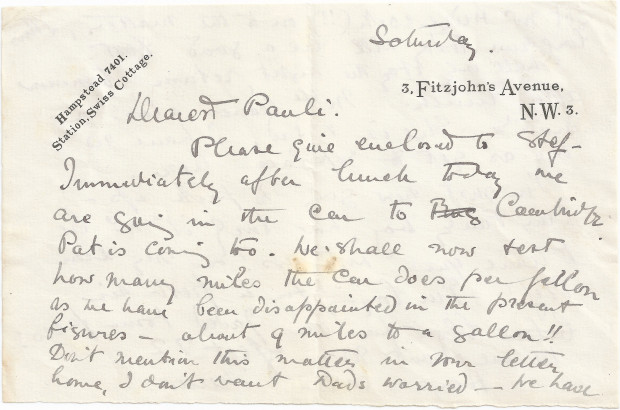 Saturday.
Hampstead 7401.
Station, Swiss Cottage.
3, Fitzjohn's Avenue,
N.W. 3.
Dearest Pauli.
Please give enclosed to Stef-
Immediately after lunch today we
are going in the car to Cambridge
Pat is coming too. We shall now test
how many miles the car does per gallon
as we have been disappointed in the present
figures - about 9 miles to a gallon!!
Don't mention this matter in your letter
home, I don't want Dads worried - We have